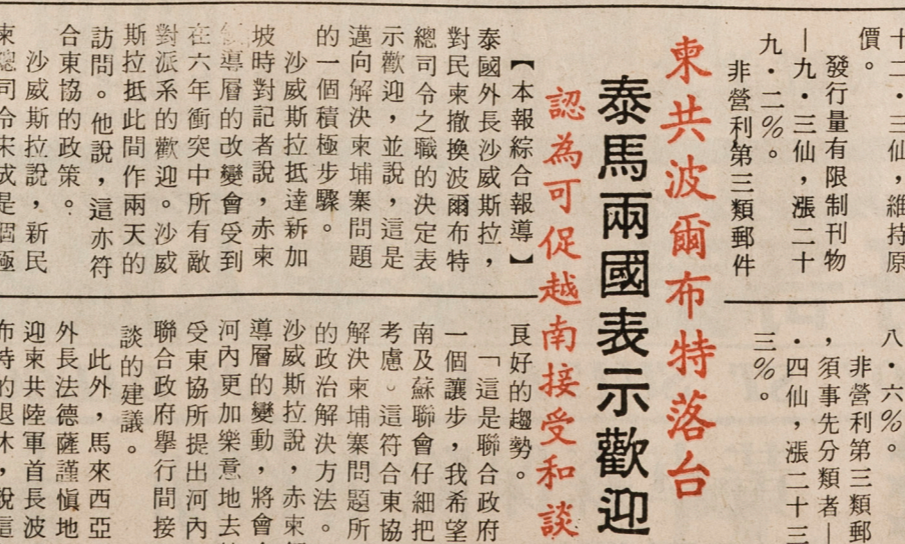 十二・三仙，維持原
價。
發行量有限制刊物
—九・三仙，漲二十
九・二%。
非營利第三類郵件
八・六%。
非營利第三類郵
，須事先分類者—
・四仙，漲二十三
三%。
柬共波爾布特落台
泰馬兩國表示歡迎
認為可促越南接受和談
【本報綜合報導】
泰國外長沙威斯拉，
對民柬撤換波爾布特
總司令之職的決定表
示歡迎，並說，這是
邁向解決柬埔寨問題
的一個積極步驟。
沙威斯拉抵達新加
坡時對記者說，赤柬
領導層的改變會受到
在六年衝突中所有敵
對派系的歡迎。沙威
斯拉抵此間作兩天的
訪問。他說，這亦符
合東協的政策。
沙威斯拉說，新民
柬總司令宋成是個極
良好的趨勢。
「這是聯合政府
一個讓步，我希望
南及蘇聯會仔細把
考慮。這符合東協
解決柬埔寨問題所
的政治解決方法。
沙威斯拉說，赤柬
導層的變動，將會
河內更加樂意地去
受東協所提出河內
聯合政府舉行間接
談的建議。
此外，馬來西亞
外長法德薩謹慎地
迎柬共陸軍首長波
布特的退休，說這